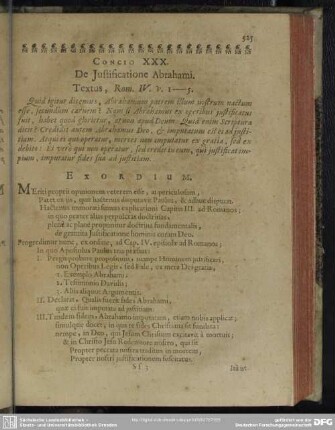 325
CONCIO XXX.
De Justificatione Abrahami.
Textus, Rom. IV. v. 1—5.
Quid igitur dicemus, Abrahamum patrem illum nostrum nactum
esse, secundum carnem? Nam si Abrahamus ex operibus justificatus
fuit, habet quod glorietur, at non apud Deum. Quid enim Scriptura
dicit? Credidit autem Abrahamus Deo, & imputatum est ei ad justi-
tiam. Atqui ei qui operatur, merces non imputatur ex gratia, sed ex
debito: Ei vero qui non operatur, sed credit in eum, qui justificat im-
pium, imputatur fides sua ad justitiam.
EXORDIUM.
propriè opinionem veterem esse,
Patet ex iis, quae hactenus disputavit Paulus, & adhuc disputat.
Hactenus immorati sumus explicationi Capitis III. ad Romanos;
in quo praeter alias perpulcras doctrinas,
planè ac plenè proponitur doctrina fundamentalis,
de gratuita Justificatione hominis coram Deo.
Progredimur nunc, ex ordine, ad Cap. IV. epistolae ad Romanos;
In quo Apostolus Paulus tria praestat:
I. Pergit probare propositionem, nempe Hominem justificari,
non Operibus Legis, sed Fide, ex mera Dei gratia;
1. Exemplo Abrahami.
2. Testimonio Davidis.
3. Aliis aliquot Argumentis.
II. Declarat, Qualis fuerit fides Abrahami,
quae ei fuit imputata ad justitiam.
III. Tandem fidem, Abrahamo imputatam, etiam nobis applicat;
simulque docet, in quo ea fides Christiana sit fundata:
nempe, in Deo, qui Jesum Christum excitavit à mortuis;
& in Christo Jesu Redemtore nostro, qui sit
Propter peccata nostra traditus in mortem,
Propter nostri justificationem suscitatus.
Sf 3